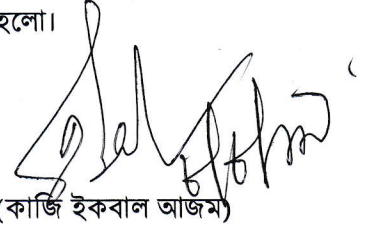 হলো।
(কাজি ইকবাল আজম)